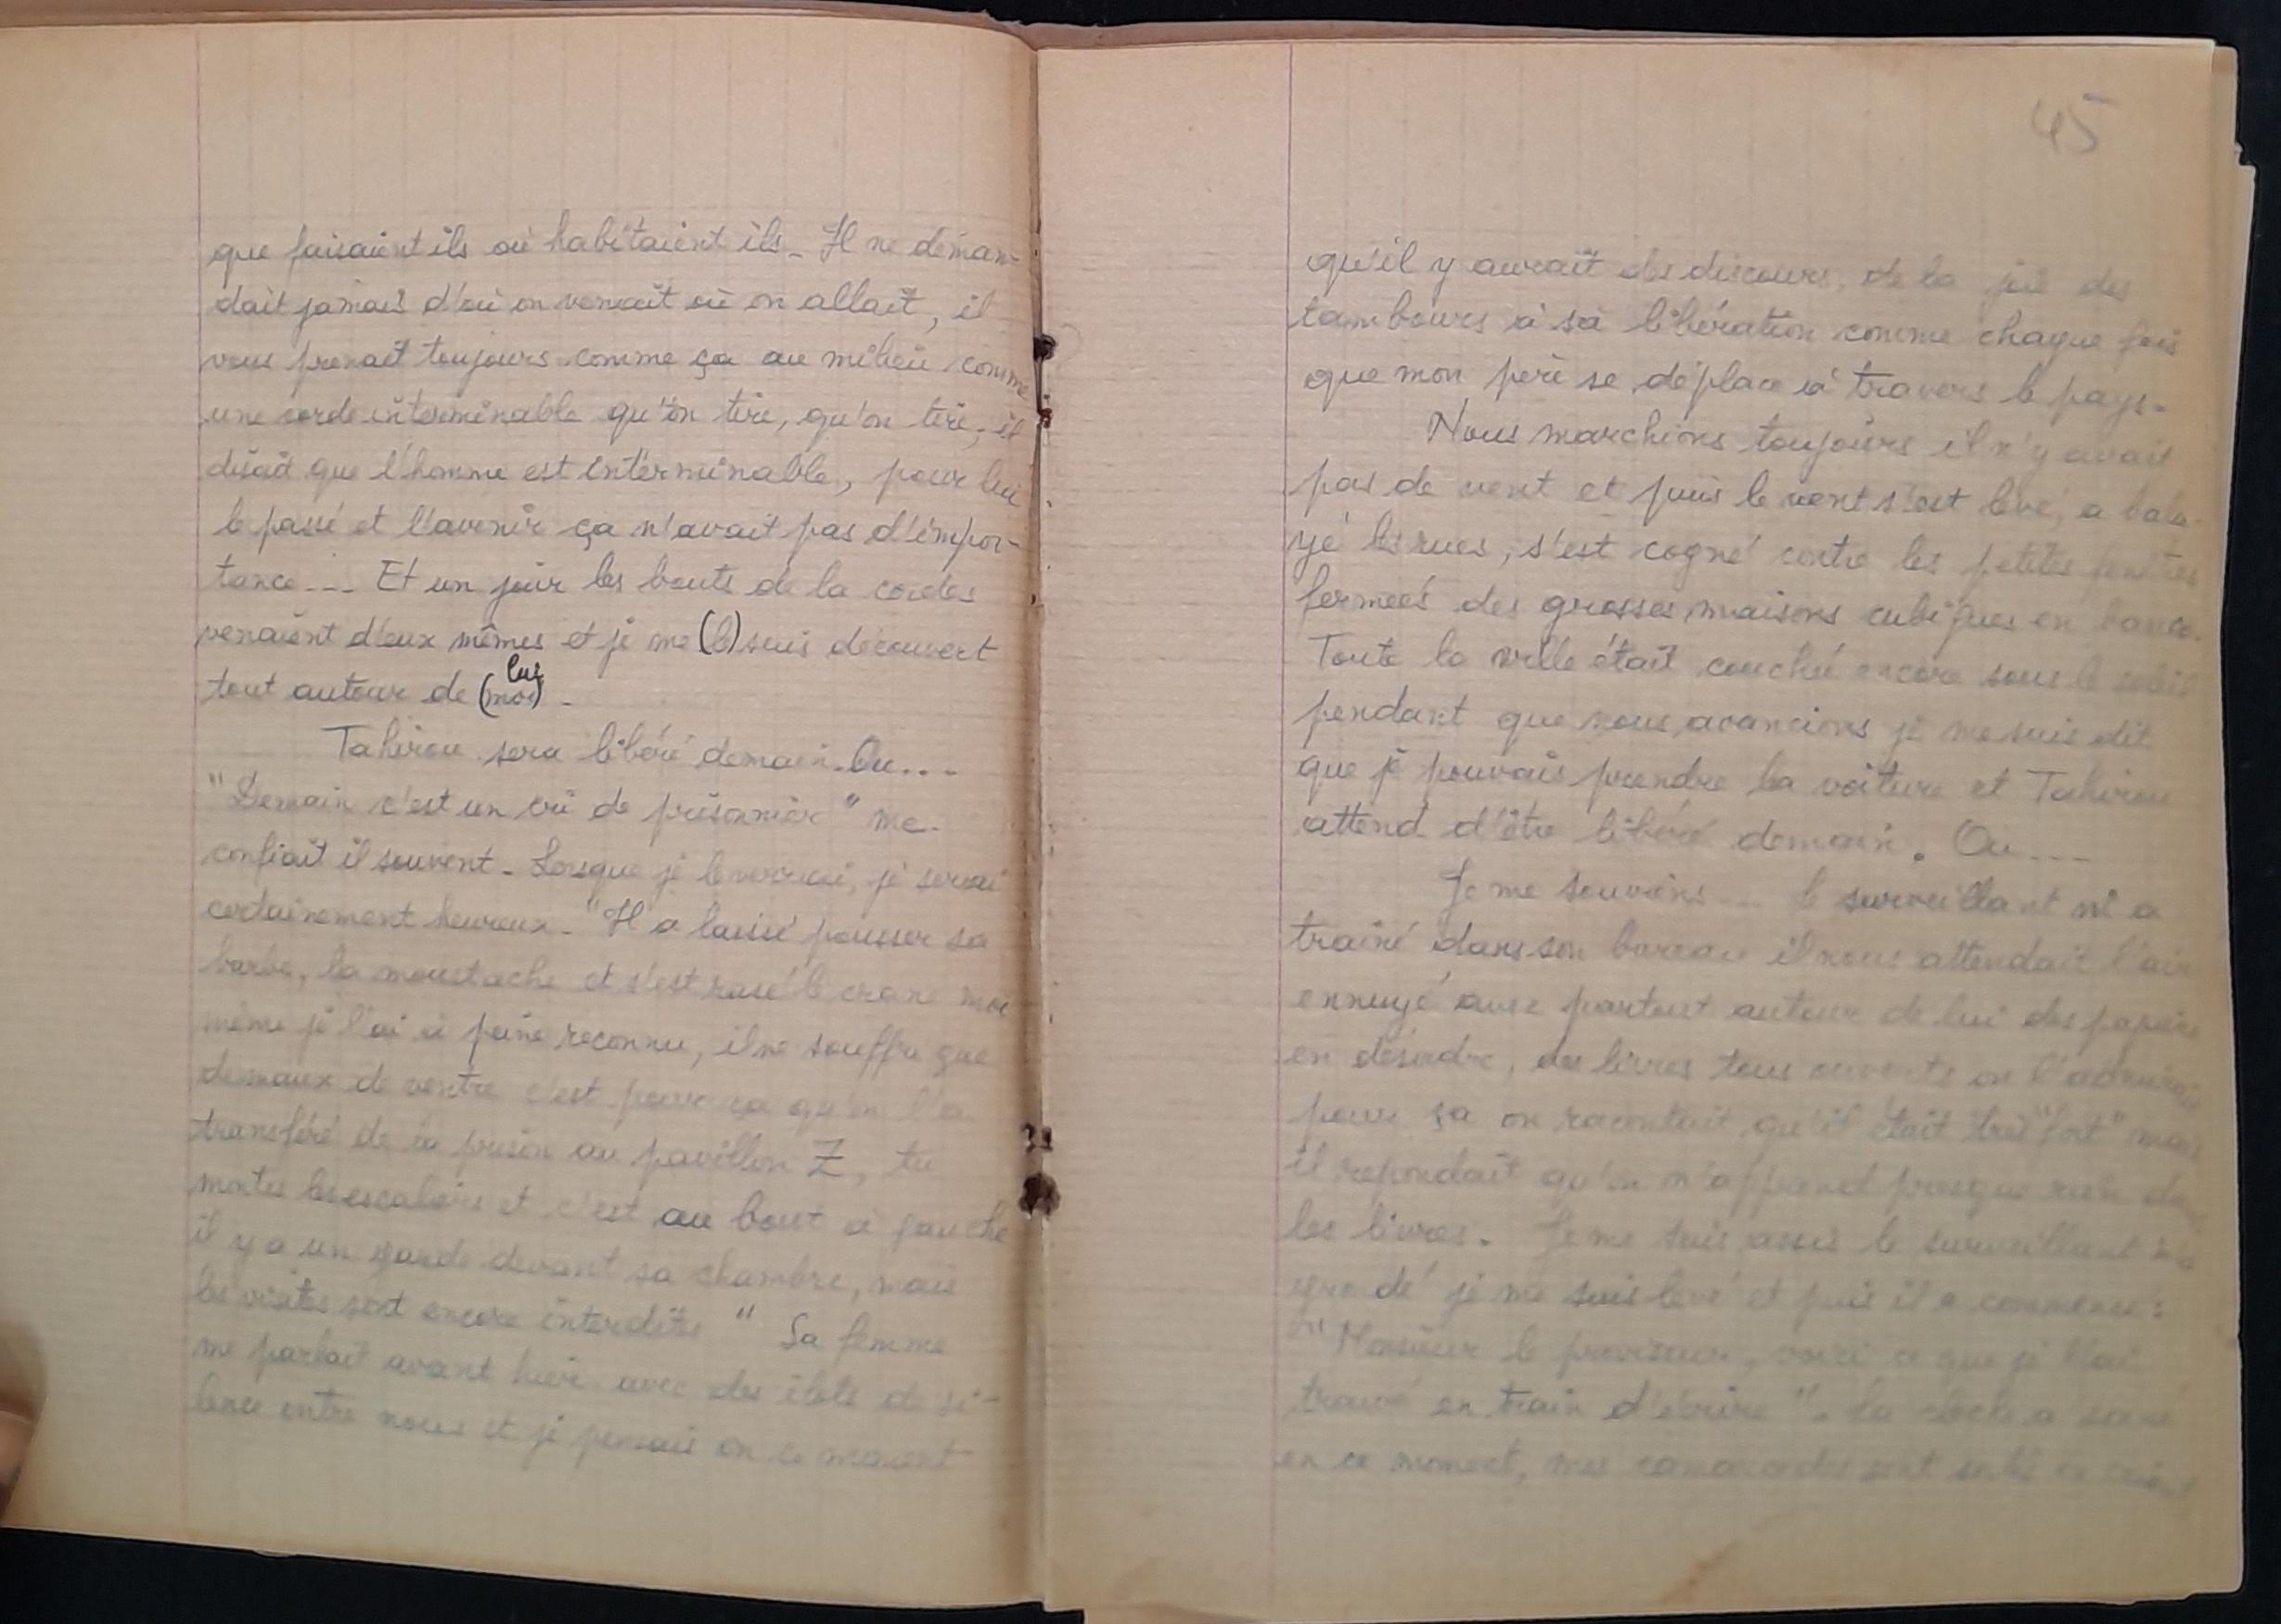 que faisaient ils où habitaient ils - Il ne deman-
dait jamais d'où on venait où on allait, il
vous prenait toujours comme ça au milieu comme
une corde interminable qu'on tire, qu'on tire, il
disait que l'homme est interminable, pour lui
le passé et l'avenir ça n'avait pas d'impor-
tance --- Et un jour les bouts de la cordes
venaient d'eux mêmes et je me (le) suis découvert
lui
tout autour de (moi) -
Tahirou sera libéré demain. Ou...
"Demain c'est un cri de prisonnier" me
confiait il souvent - Lorsque je le verrai, je serai
certainement heureux - "Il a laissé pousser sa
barbe, la moustache et s'est rasé le crane moi
même je l'ai à peine reconnu, il ne souffre que
de maux de ventre c'est pour ça qu'on l'a
transféré de la prison au pavillon Z, tu
montes les escaliers et c'est au bout à gauche
il y a un garde devant sa chambre, mais
les visites sont encore interdites" Sa femme
me parlait avant hier avec des ilots de si-
lence entre nous et je pensais en ce moment
45
qu'il y aurait des discours, de la joie des
tambours à sa libération comme chaque fois
que mon père se déplace à travers le pays.
Nous marchions toujours il n'y avait
pas de vent et puis le vent s'est levé, a bala-
yé les rues, s'est cogné contre les petites fenêtres
fermées des grosses maisons cubiques en banco.
Toute la ville était couchée encore sous le soleil
pendant que nous avancions je me suis dit
que je pouvais prendre la voiture et Tahirou
attend d'être libéré demain. Ou ---
Je me souviens --- le surveillant m'a
trainé dans son bureau il nous attendait l'air
ennuyé avec partout autour de lui des papiers
en désordre, des livres tous ouverts on l'admirait
pour ça on racontait qu'il était très "fort" mais
il repondait qu'on n'apprend presque rien dans
les livres. Je me suis assis le surveillant m'a
grondé je me suis levé et puis il a commencé :
"Monsieur le proviseur, voici ce que je l'ai
trouvé en train d'écrire". La cloche a sonné
en ce moment, mes camarades sont sortis en